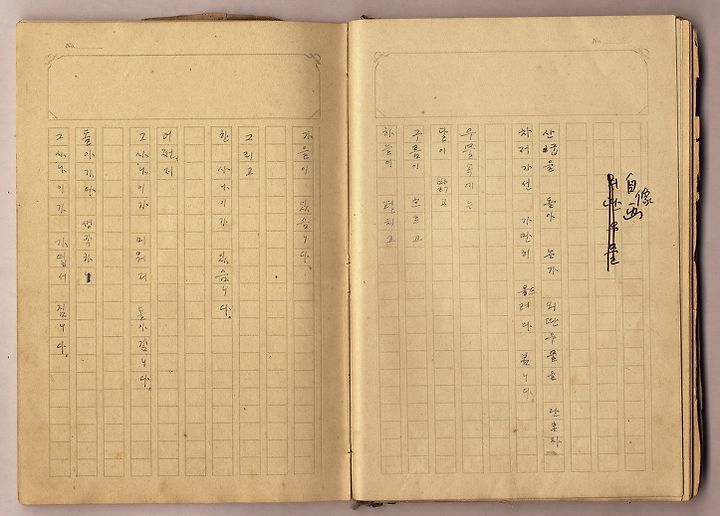 No.
自画像
외딴우물
산굽을 돌아 논가 외딴우물을 단혼자
차저가선 가만히 들려다 봅니다.
우물속에는
달이 밝고
구름이 흐르고
하늘이 펄치고
No.
가을이 있습니다.
그리고
한 사나이가 있습니다.
어쩐지
그 사나이가 미워저 돌아갑니다.
돌아가다 생각하니
그 사나이가 가엽서 집니다.